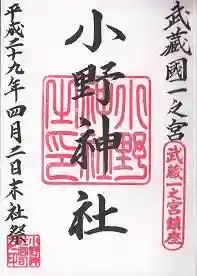 武蔵國一之宮
武蔵一之宮鎮座
小野神社
小野神社之印
平成二十九年四月二日末社祭